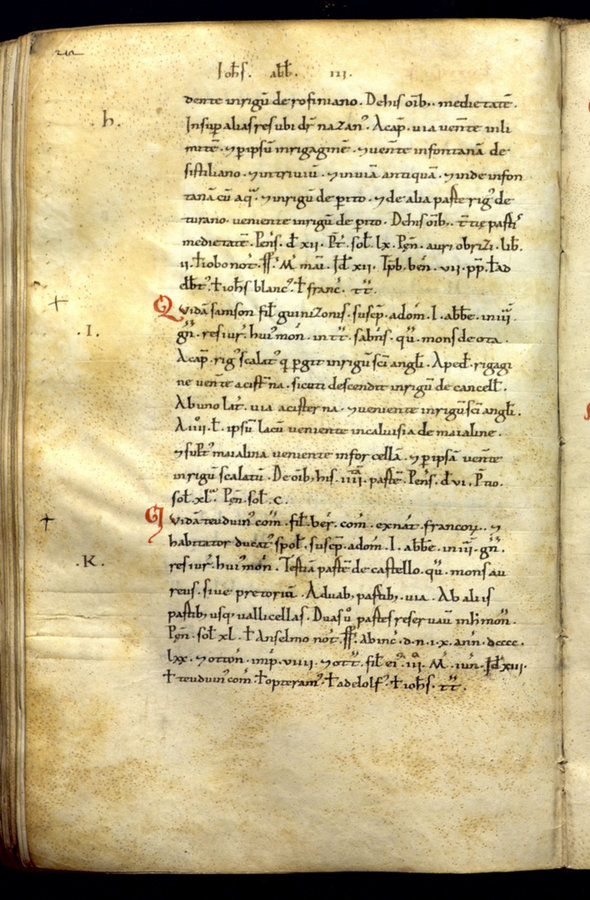 Ioh̅s. abb̅. III.
dente inrigũ derofiniano. Dehis oi̅b; medietatẽ.
h. Insup̱ aliasres ubi dr̅ nazan'. Acap̅. uia uen̅te inli
mitẽ. ⁊ p̱ ipsũ inrigaginẽ. ⁊ uen̅te infontanã de
sistiliano. ⁊ intriuiũ. ⁊ inuiã antiquã. ⁊ inde infon
tanã cũ aq̃. ⁊ inrigũ de p̱ito. ⁊ de alia parte rig' de
turano. ueniente inrigũ de p̱ito. Dehis oi̅b;
medietatẽ. Pens̅. d̅ XII. Pt̅. sol̅. LX. Pẹn̅. auri obrizi. lib̅.
II. ioh̅s blanc'. franc̅. tt̅.
Quidã samson fil̅ guinizonis. suscp̅. adom̅. I. abb̅e. in III
.I. gn̅. resiur̅. hui' mon̅. in tt̅. sabin̅s. qu̅. mons de ota.
Acap̅. rig' scalat' q̱ p̱git inrigũ sc̅i angl̅i. Aped̅. rigagi
ne uen̅te acist̅na. sicuti descendit inrigũ de cancell̅.
Ab uno lat̅. uia acisterna. ⁊ ueniente inrigũ sc̅i angl̅i.
A IIII. l̅. ipsũ lacũ ueniente incaluisia de maialine.
⁊ sup̱ maialina ueniente infor cellã. ⁊ p̱ ipsã uen̅te
inrigũ scalatũ. De oi̅b; his. IIII. parte̅. Pens̅. d̅ VI. P̱tio.
sol̅. XL. Pẹn̅. sol̅. C.
Quidã teuduin' com̅. fil̅. ber̅. com̅. exnat̅. francoꝝ. ⁊
habitator ducat' spol̅. suscp̅. adom̅. I. abb̅e. in IIII. gn̅.
.K. resiur̅. hui' mon̅. Tertiã parte̅ de castello. qu̅. mons au
reus. siue pretoriũ. A duab; partib; uia. Ab aliis
partib; usq; uallicellas. Duas u̅ partes reseruauit inh̅ mon̅.
Pẹn̅. sol̅ XL. Anselmo not̅. ff̅. abinc̅. d. n. I. X. ann̅. DCCCC.
LXX. ⁊ otton̅. imp̅. VIIII. ⁊ ott̅. fil̅. ei' .III. M̅. iun̅. Id̅ XIII.
teuduin' com̅. opteram' adelolf' ioh̅s. tt̅.